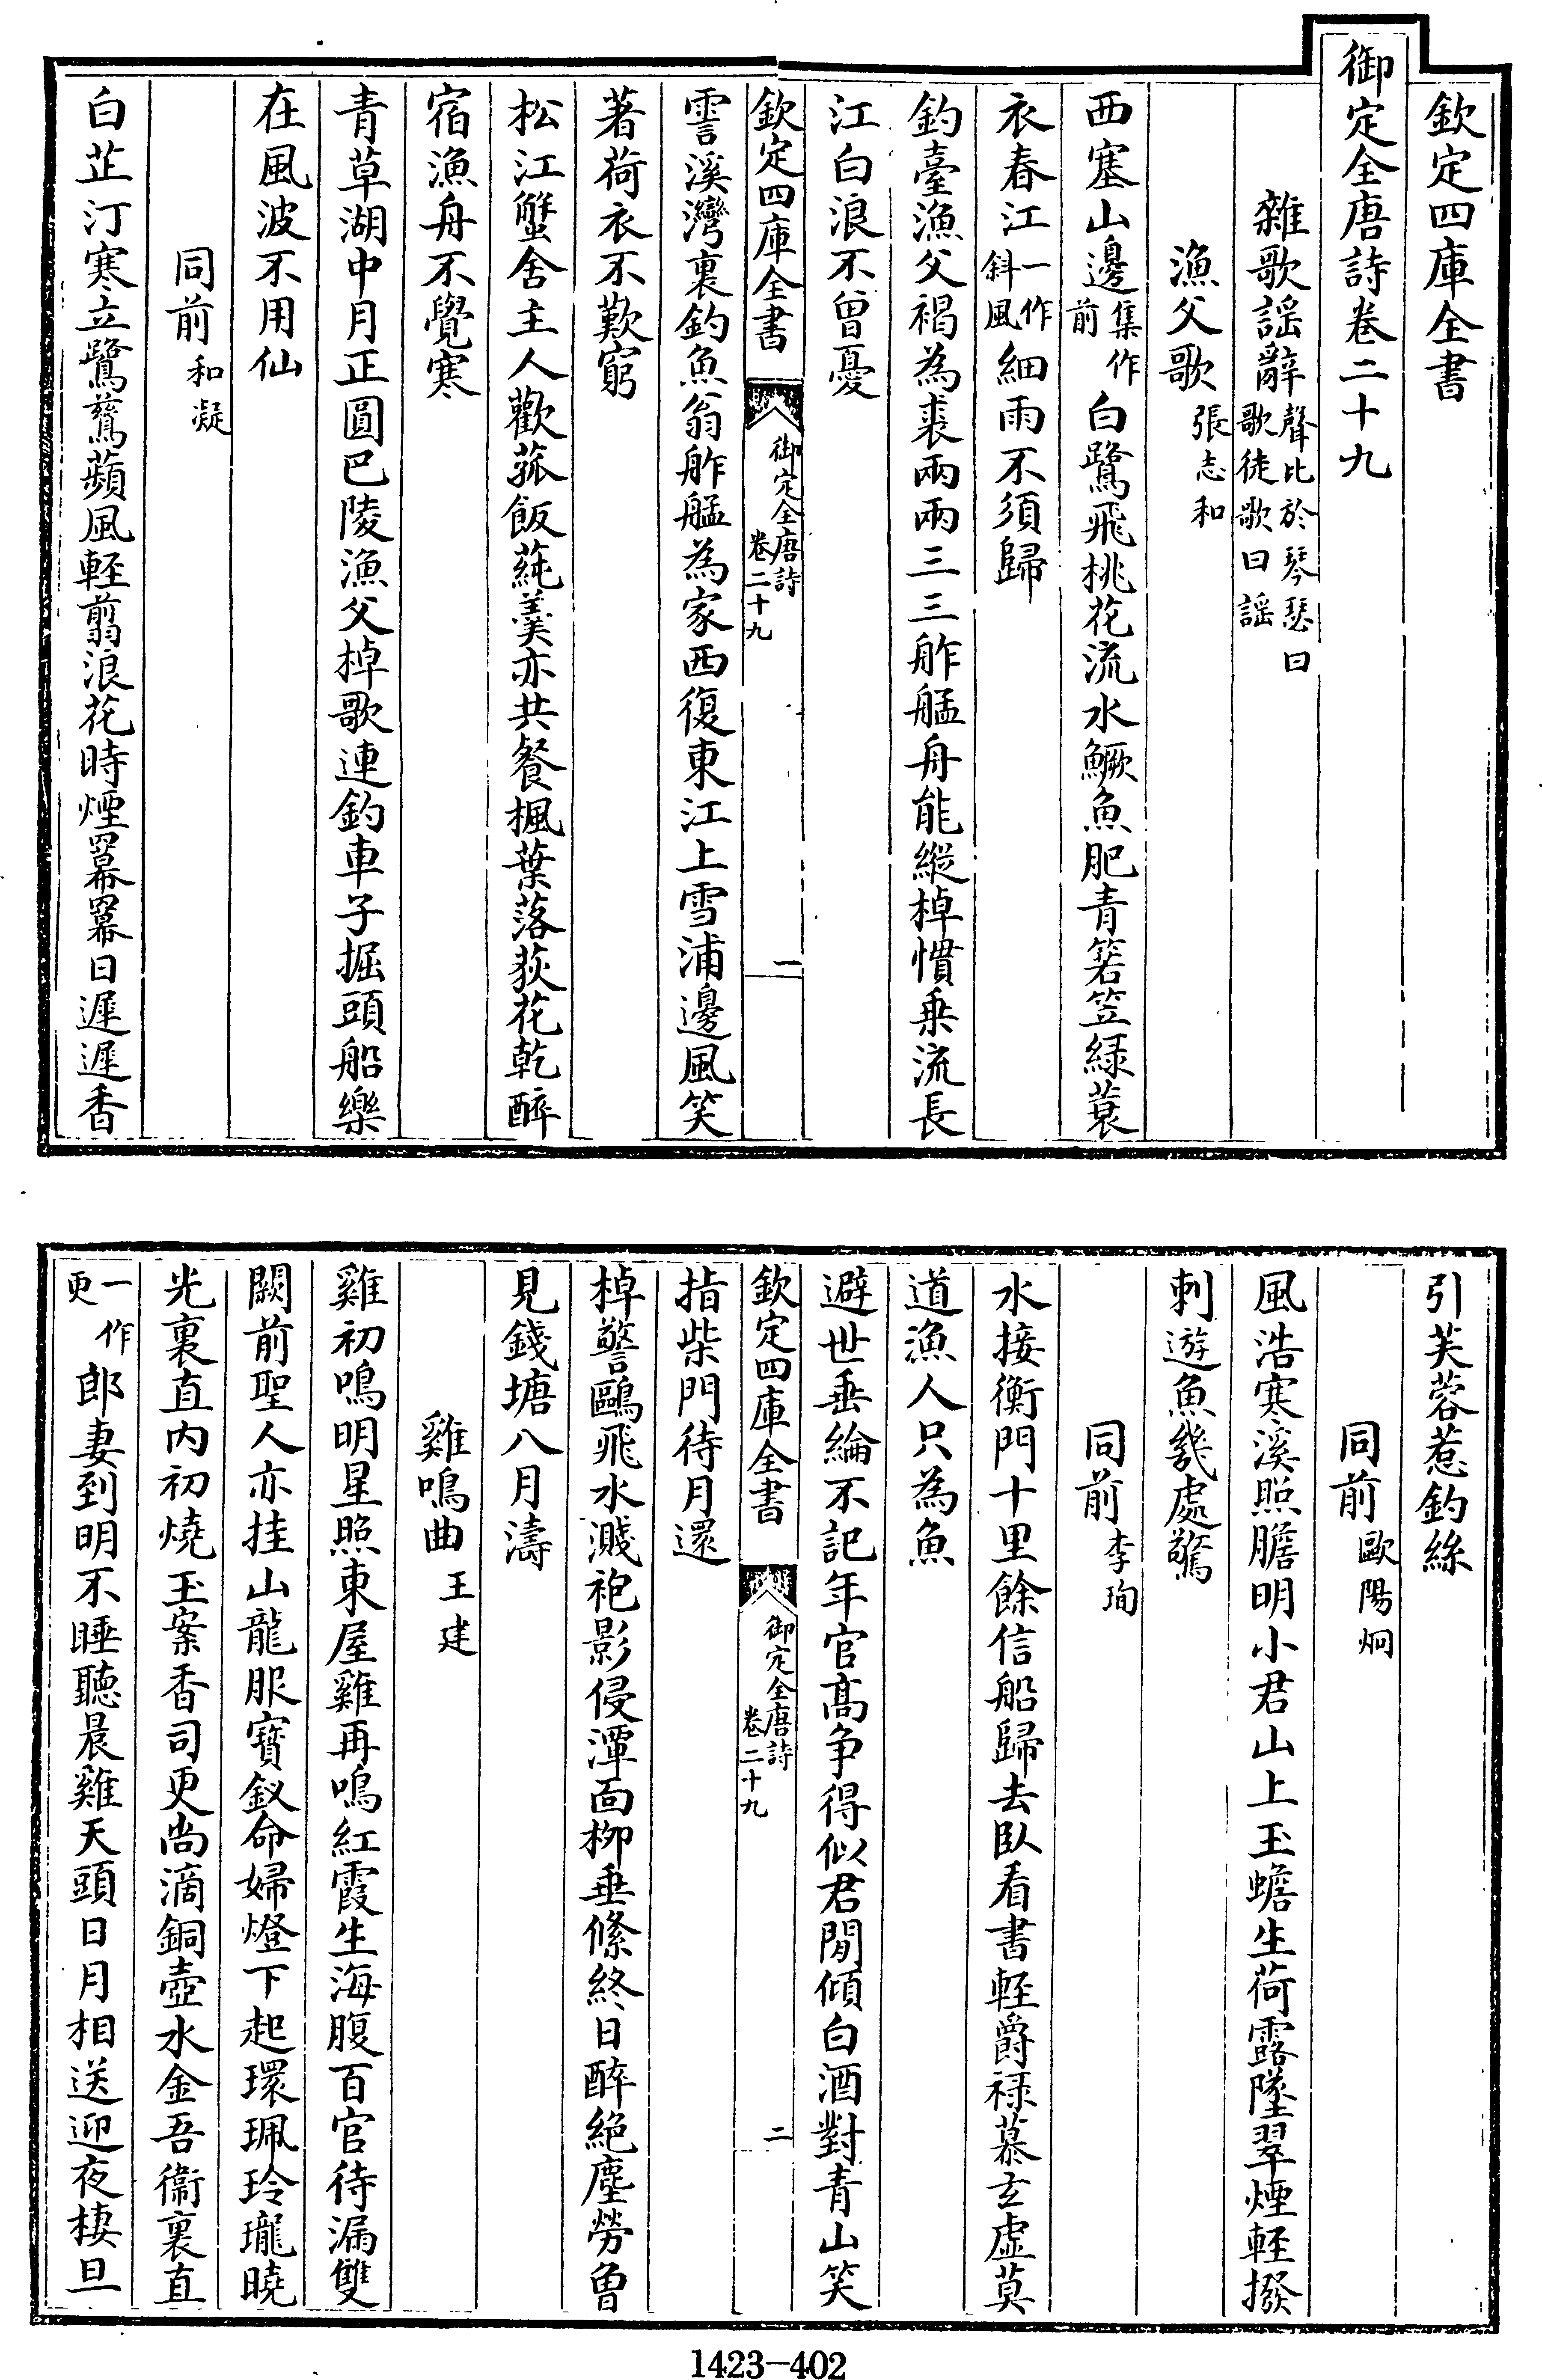 欽定四庫全書
御定全唐詩卷二十九
雜歌謡辭聲比於琴瑟曰歌徒歌曰謡
漁父歌張志和
西塞山邊集作前白鷺飛桃花流水鱖魚肥青箬笠緑蓑
衣春江一作斜風細雨不須歸
釣臺漁父褐為裘兩兩三三舴艋舟能縱棹慣乗流長
江白浪不曾憂
欽定四庫全書 御定全唐詩卷二十九 一
霅溪灣裏釣魚翁舴艋為家西復東江上雪浦邊風笑
著荷衣不歎窮
松江蟹舍主人歡菰飯蓴羮亦共餐楓葉落荻花乾醉
宿漁舟不覺寒
青草湖中月正圓巴陵漁父棹歌連釣車子掘頭船樂
在風波不用仙
同前和凝
白芷汀寒立鷺鶿蘋風輕翦浪花時煙羃羃日遲遲香
引芙蓉惹釣絲
同前歐陽炯
風浩寒溪照膽明小君山上玉蟾生荷露墜翠煙輕撥
刺遊魚幾處驚
同前李珣
水接衡門十里餘信船歸去臥看書輕爵禄慕玄虚莫
道漁人只為魚
避世垂綸不記年官高争得似君閒傾白酒對青山笑
欽定四庫全書 御定全唐詩卷二十九 二
指柴門待月還
棹警鷗飛水濺袍影侵潭面柳垂絛終日醉絶塵勞曾
見錢塘八月濤
雞鳴曲王建
雞初鳴明星照東屋雞再鳴紅霞生海腹百官待漏雙
闕前聖人亦挂山龍服寳釵命婦燈下起環珮玲瓏曉
光裏直内初燒玉案香司更尚滴銅壺水金吾衞裏直
一作更郎妻到明不睡聽晨雞天頭日月相送迎夜棲旦
1423-402